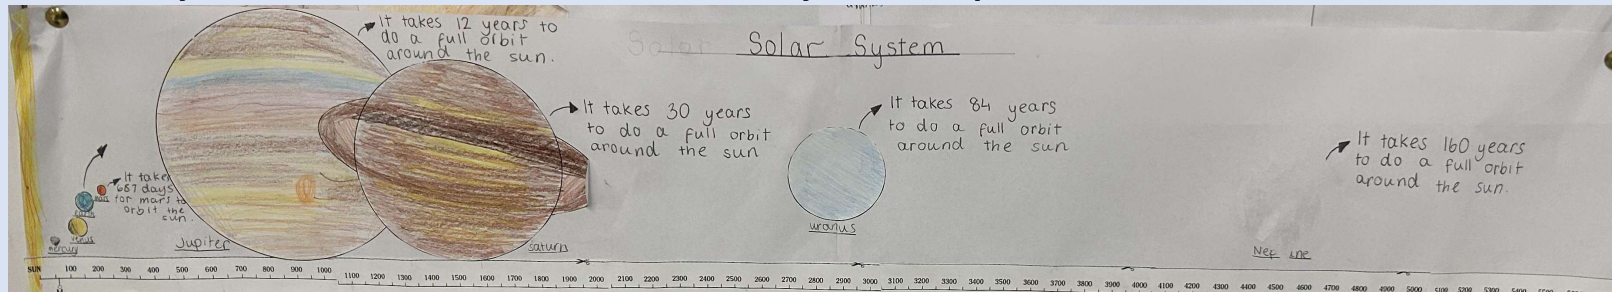 Solar System
It takes 12 years to
do a full orbit
around the sun.
It takes 30 years
to do a full orbit
around the sun
It takes 84 years
to do a full orbit
around the sun
It takes 160 years
to do a full orbit
around the sun.
It take
667 days
for mars to
orbit the
sun.
mars
earth
venus
mercury
Jupiter
saturn
uranus
SUN 100 200 300 400 500 600 700 800 900 1000 1100 1200 1300 1400 1500 1600 1700 1800 1900 2000 2100 2200 2300 2400 2500 2600 2700 2800 2900 3000 3100 3200 3300 3400 3500 3600 3700 3800 3900 4000 4100 4200 4300 4400 4500 4600 4700 4800 4900 5000 5100 5200 5300 5400